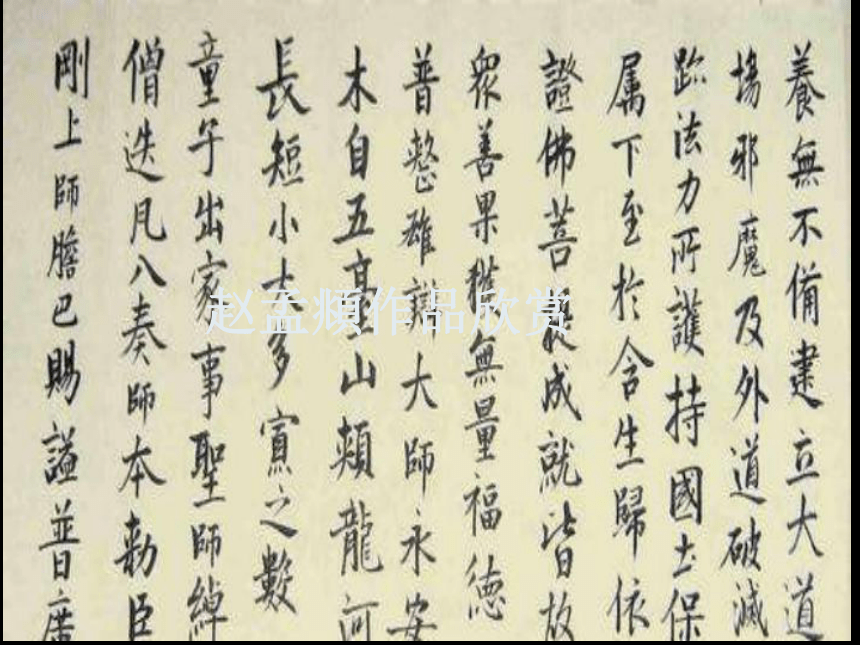 赵孟頫作品欣赏
養無不備建立大道
場邪魔及外道破滅
跡法力所護持國土保
属下至於含生歸依
證佛菩成就皆故
眾善果獲無量福德
普整雄辯大師永安
木自五臺山頰龍河
長短小大多寡之數
童子出家事聖師綽
僧迭凡八奏師本勅臣
剛上師膽巴賜謚普廣